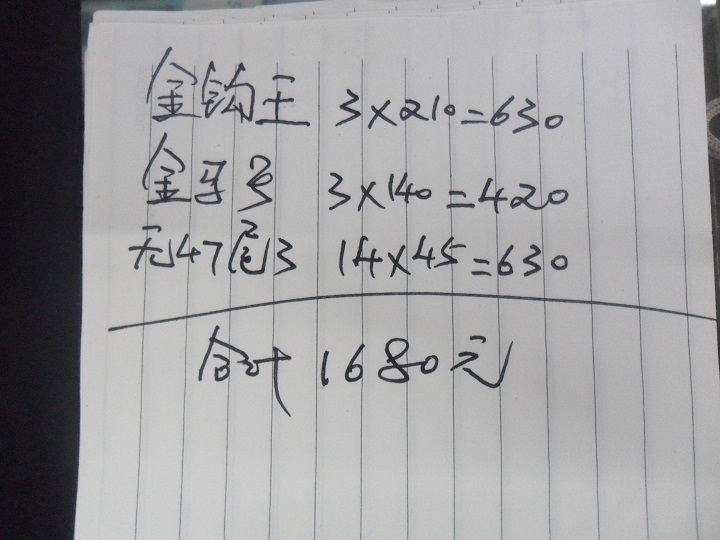 金钩王 3×210=630
金牙号 3×140=420
无47尾3 14×45=630
合计 1680元